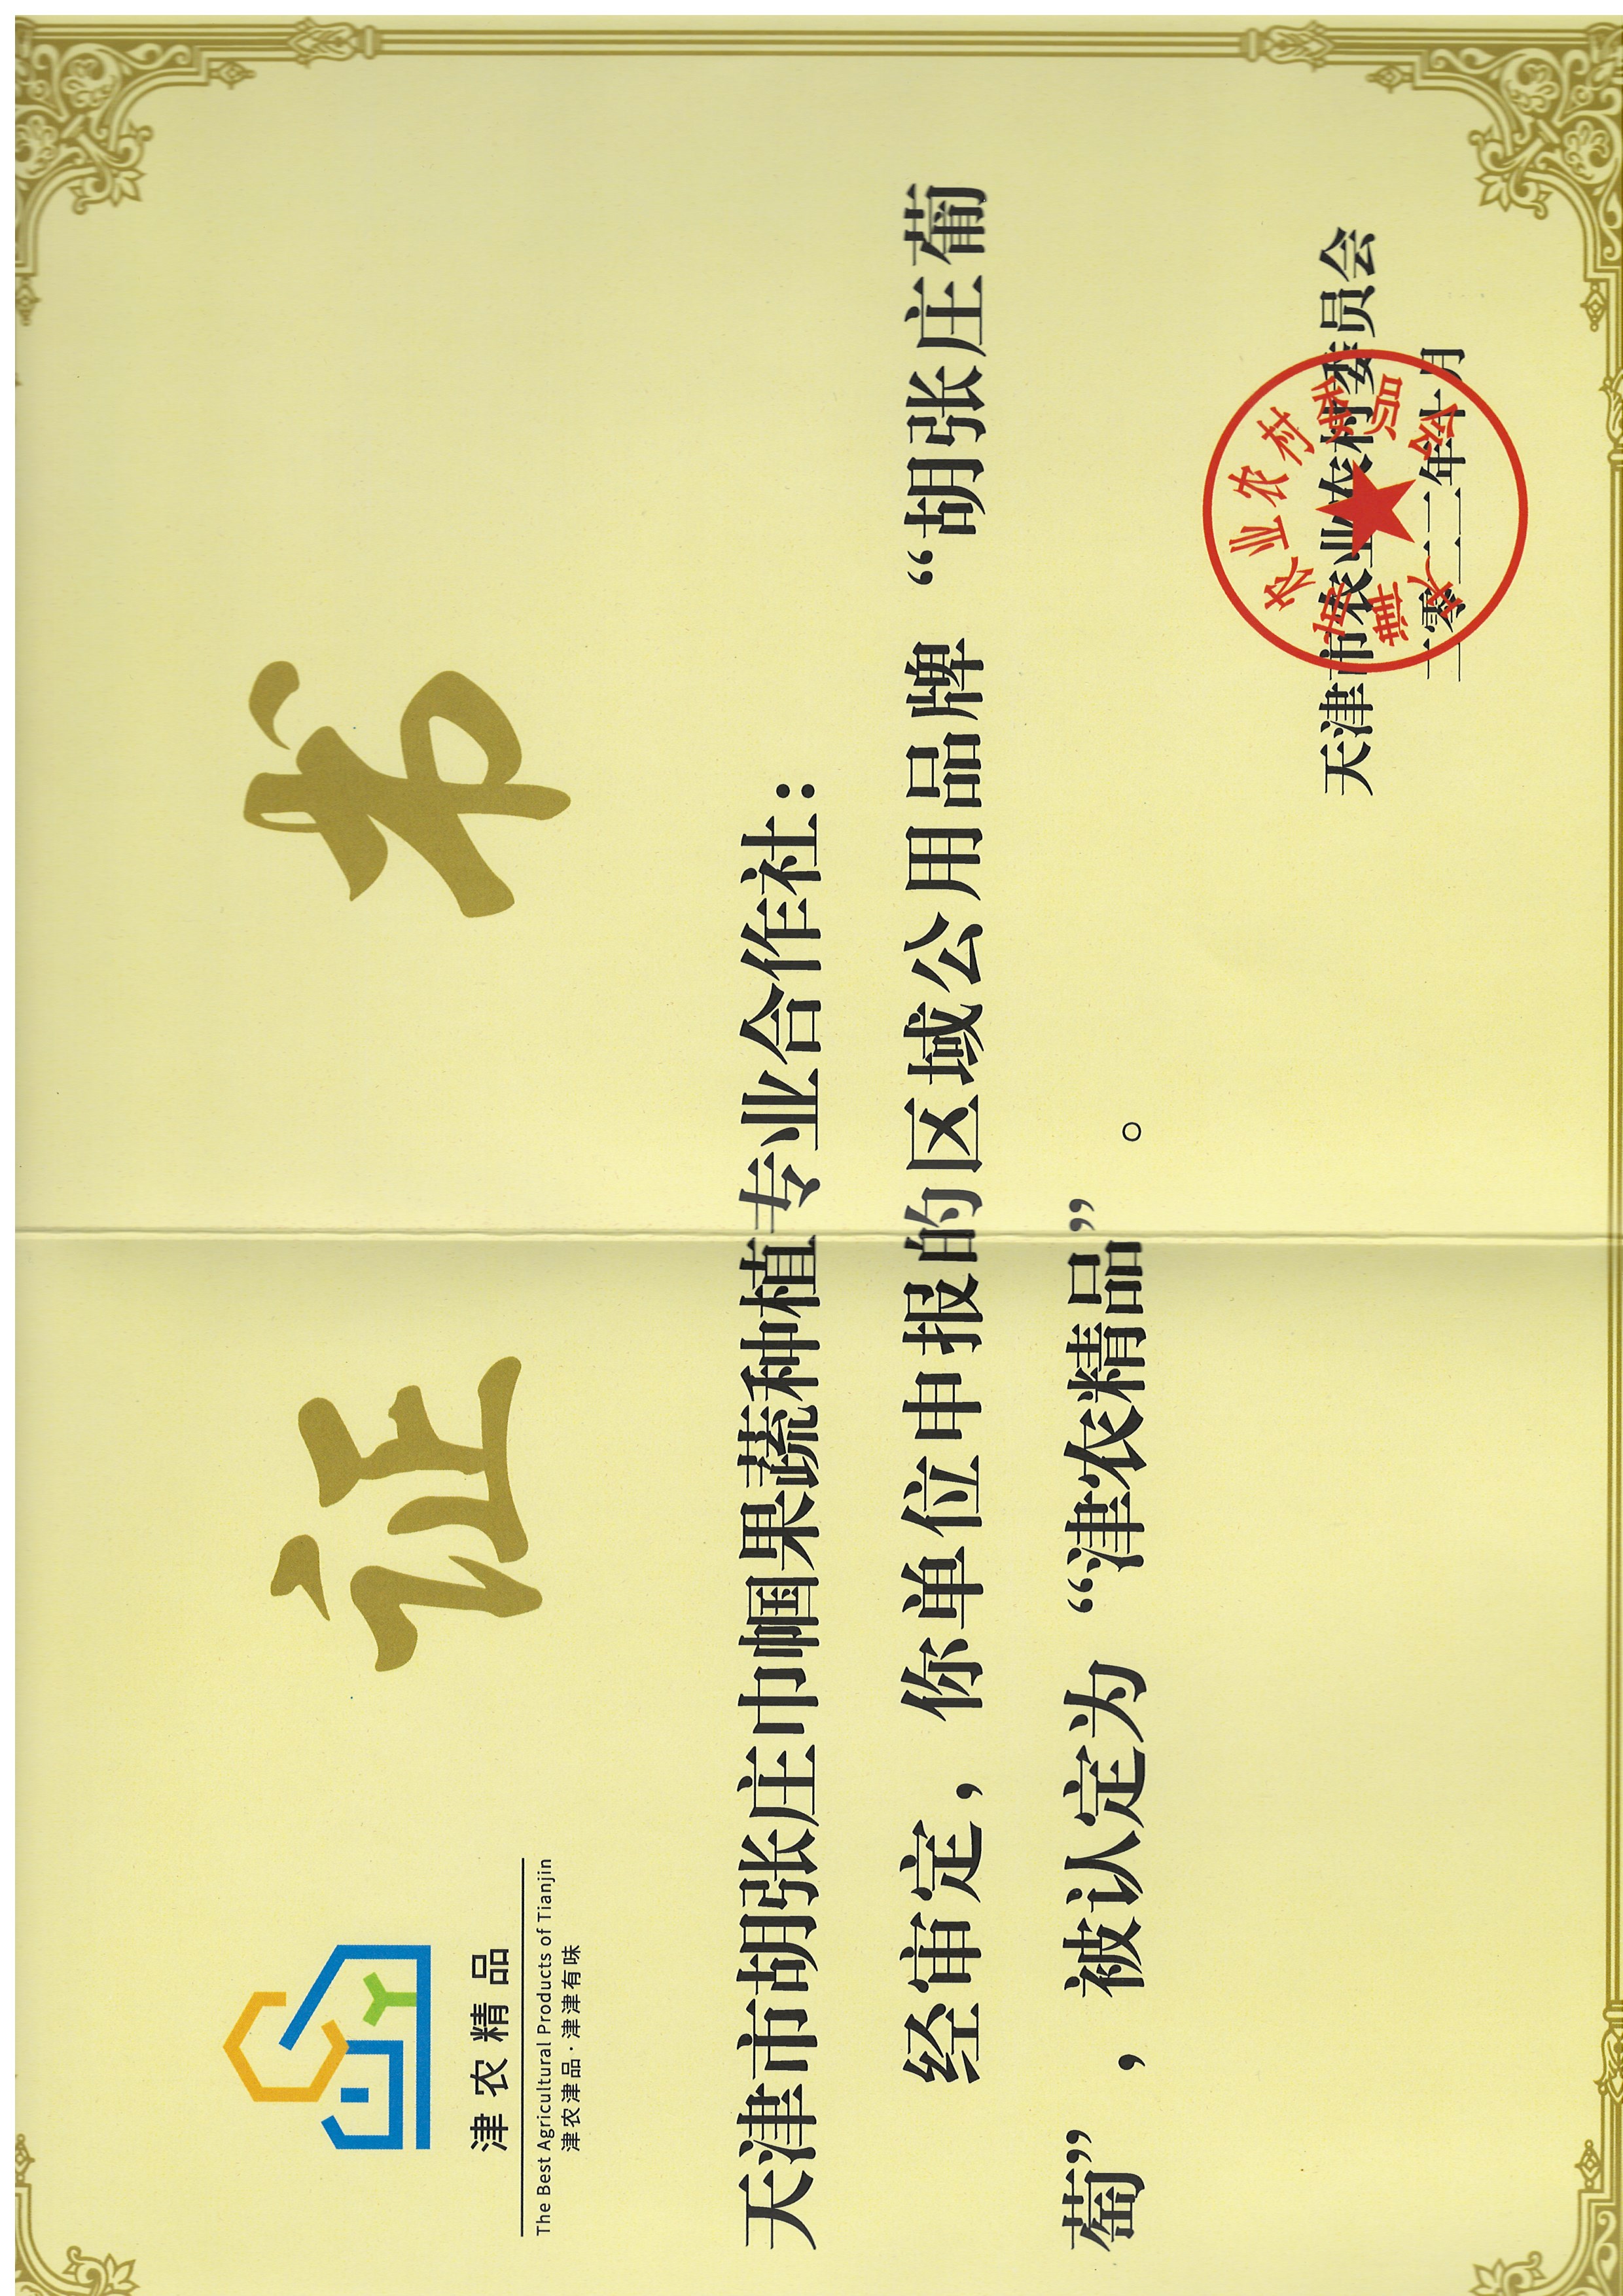 津农精品
The Best Agricultural Products of Tianjin
津农津品·津津有味
证书
天津市胡张庄巾帼果蔬种植专业合作社：
经审定，你单位申报的区域公用品牌“胡张庄葡
萄”，被认定为“津农精品”。
天津市农业农村委员会
二零二二年十月
天津市农业农村委员会